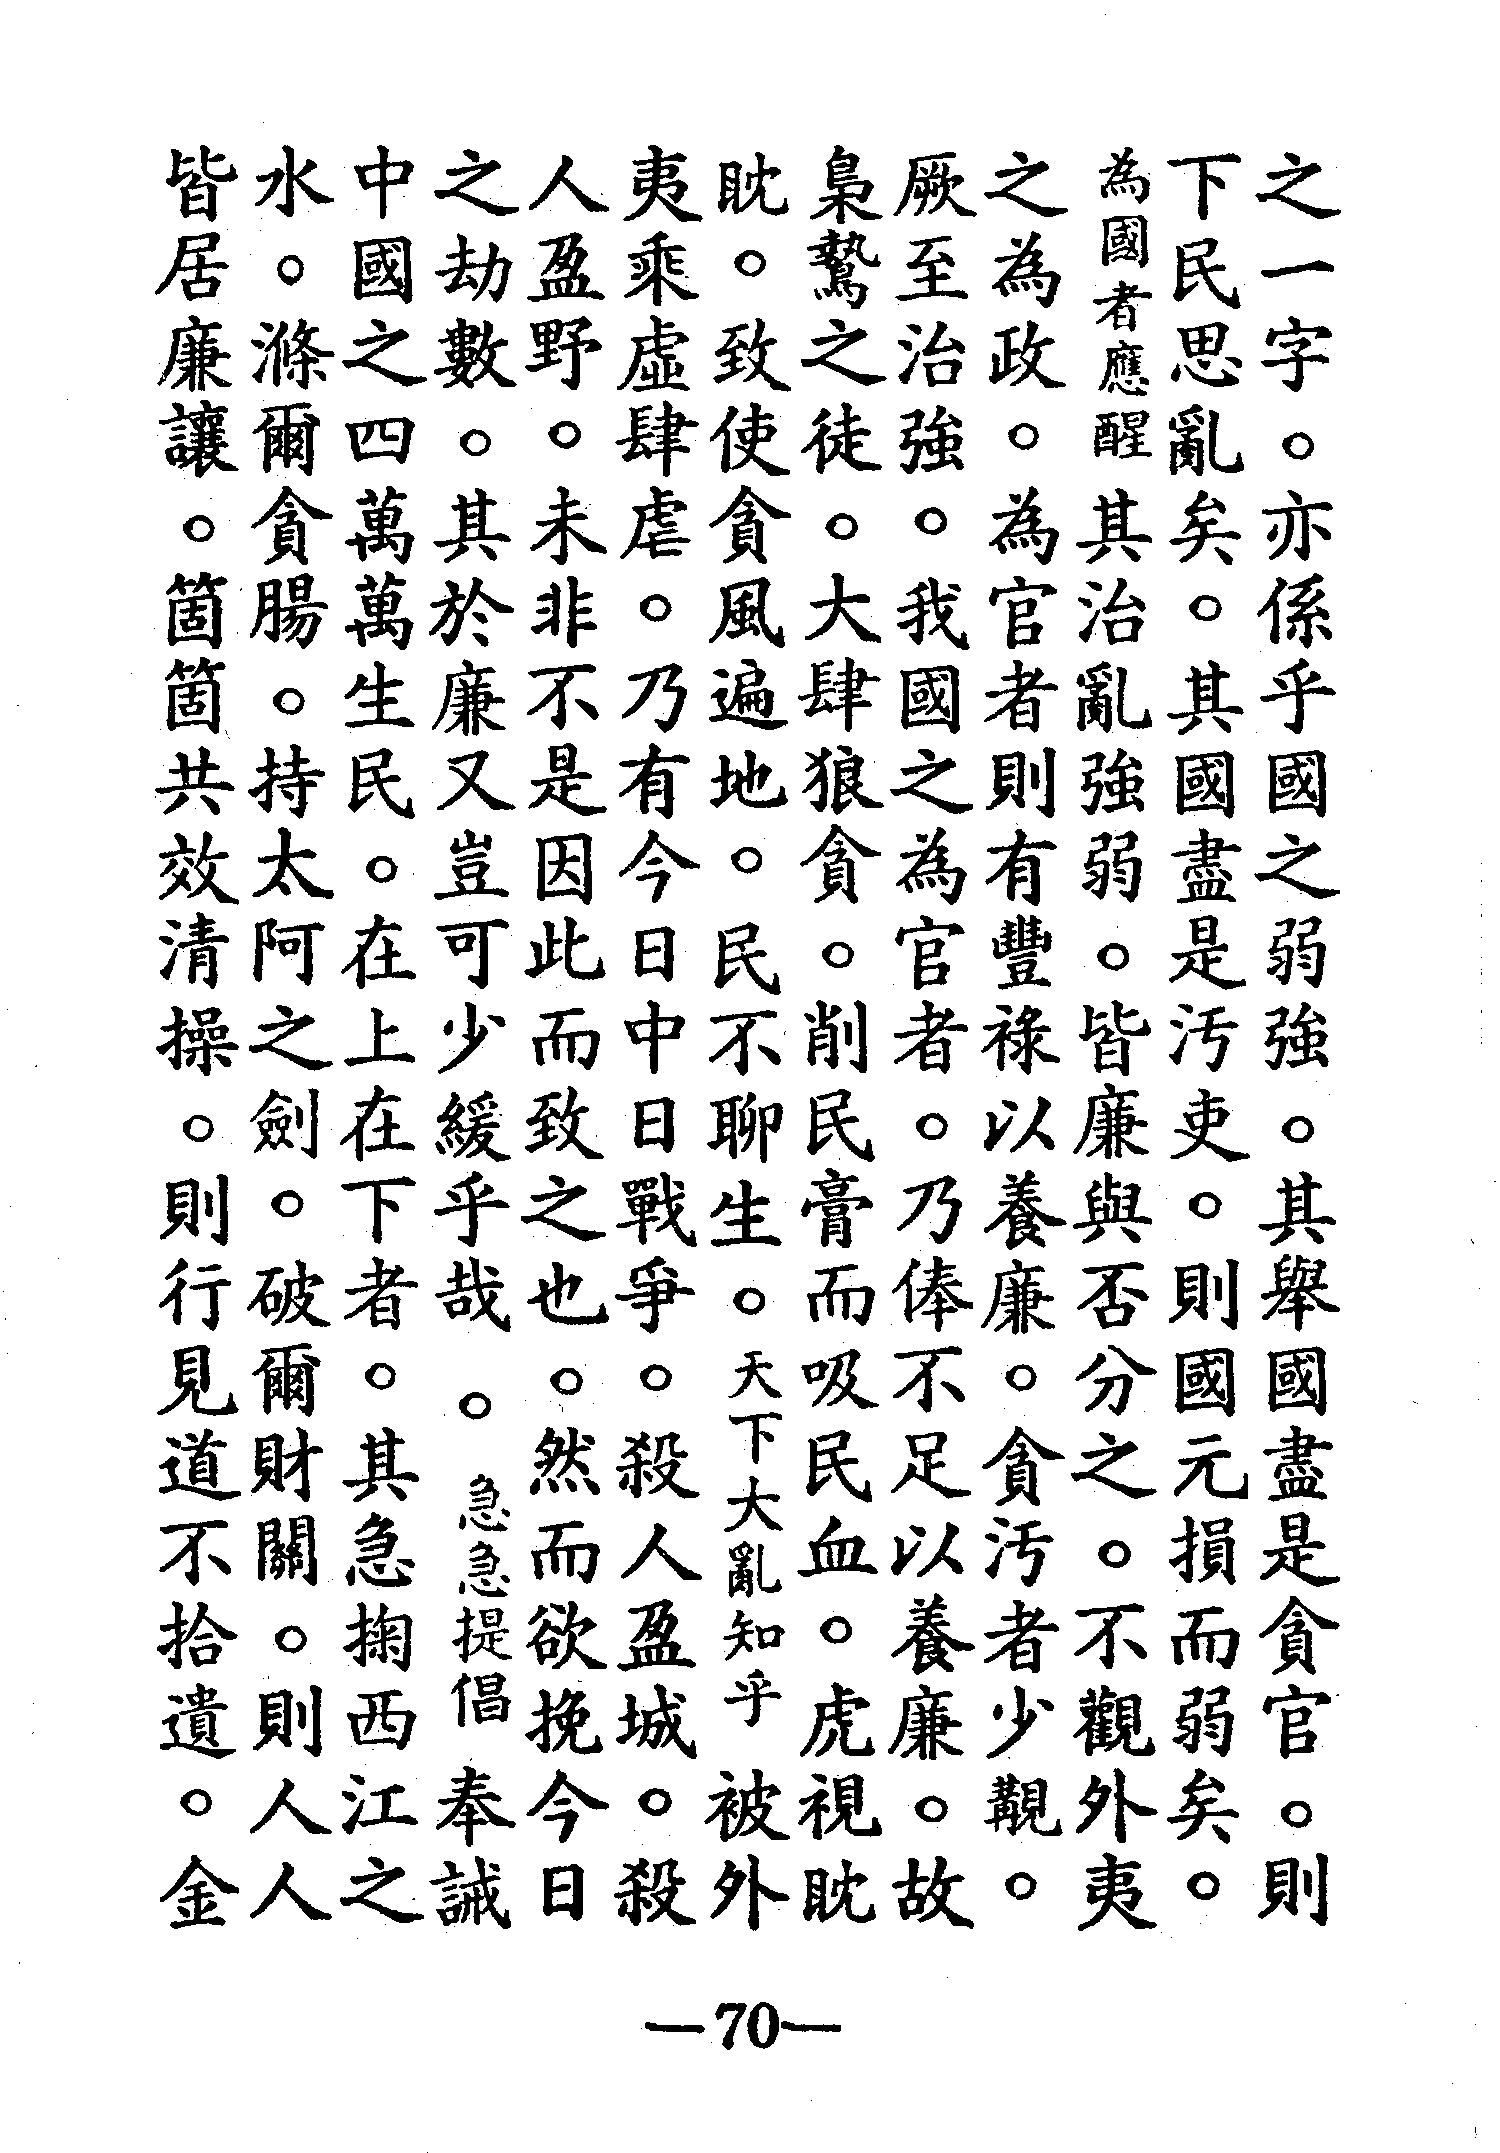 之一字。亦係乎國之弱強。其舉國盡是貪官。則
下民思亂矣。其國盡是汚吏。則國元損而弱矣。
為國者應醒其治亂強弱。皆廉與否分之。不觀外夷
之為政。為官者則有豐祿以養廉。貪汚者少覯。
厥至治強。我國之為官者。乃俸不足以養廉。故
梟鷙之徒。大肆狼貪。削民膏而吸民血。虎視眈
眈。致使貪風遍地。民不聊生。天下大亂知乎被外
夷乘虛肆虐。乃有今日中日戰爭。殺人盈城。殺
人盈野。未非不是因此而致之也。然而欲挽今日
之劫數。其於廉又豈可少緩乎哉。急急提倡奉誡
中國之四萬萬生民。在上在下者。其急掬西江之
水。滌爾貪腸。持太阿之劍。破爾財關。則人人
皆居廉讓。箇箇共效清操。則行見道不拾遺。金
—70—